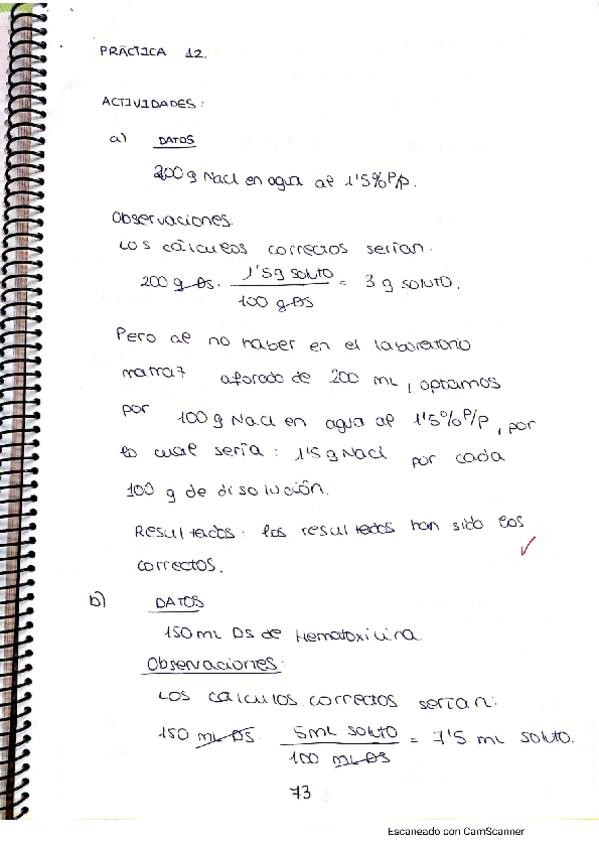 PRÁCTICA 12.
ACTIVIDADES:
a) DATOS
200 g NaCl en agua al 1'5% P/P.
Observaciones.
Los cálculos correctos serían.
200 g DS. 1'5 g soluto / 100 g DS = 3 g soluto.
Pero al no haber en el laboratorio
matraz aforado de 200 mL, optamos
por 100 g NaCl en agua al 1'5% P/P, por
lo cual sería: 1'5 g NaCl por cada
100 g de disolución.
Resultados: los resultados han sido los
correctos. ✓
b) DATOS
150 mL DS de Hematoxilina.
Observaciones:
Los cálculos correctos serían:
150 mL DS. 5 mL soluto / 100 mL DS = 7'5 mL soluto.
73
Escaneado con CamScanner